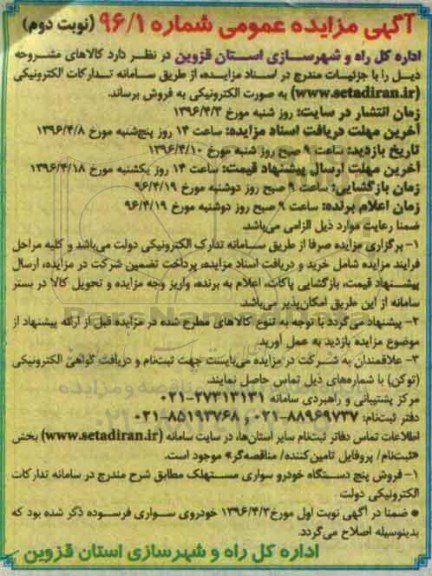 آگهی مزایده عمومی شماره ۹۶/۱ (نوبت دوم)
اداره کل راه و شهرسازی استان قزوین در نظر دارد کالاهای مشروحه
ذیل را با جزئیات مندرج در اسناد مزایده، از طریق سامانه تدارکات الکترونیکی
(www.setadiran.ir) به صورت الکترونیکی به فروش برساند.
زمان انتشار در سایت: روز شنبه مورخ ۱۳۹۶/۴/۳
آخرین مهلت دریافت اسناد مزایده: ساعت ۱۴ روز پنج‌شنبه مورخ ۱۳۹۶/۴/۸
تاریخ بازدید: ساعت ۹ صبح روز شنبه مورخ ۱۳۹۶/۴/۱۰
آخرین مهلت ارسال پیشنهاد قیمت: ساعت ۱۴ روز یکشنبه مورخ ۱۳۹۶/۴/۱۸
زمان بازگشایی: ساعت ۹ صبح روز دوشنبه مورخ ۹۶/۴/۱۹
زمان اعلام برنده: ساعت ۹ صبح روز دوشنبه مورخ ۹۶/۴/۱۹
ضمنا رعایت موارد ذیل الزامی می‌باشد.
۱- برگزاری مزایده صرفا از طریق سامانه تدارک الکترونیکی دولت می‌باشد و کلیه مراحل
فرایند مزایده شامل خرید و دریافت اسناد مزایده، پرداخت تضمین شرکت در مزایده، ارسال
پیشنهاد قیمت، بازگشایی پاکات، اعلام به برنده، واریز وجه مزایده و تحویل کالا در بستر
سامانه از این طریق امکان‌پذیر می‌باشد.
۲- پیشنهاد می‌گردد با توجه به تنوع کالاهای مطرح شده در مزایده قبل از ارائه پیشنهاد از
موضوع مزایده بازدید به عمل آورید.
۳- علاقمندان به شرکت در مزایده می‌بایست جهت ثبت‌نام و دریافت گواهی الکترونیکی
(توکن) با شماره‌های ذیل تماس حاصل نمایند.
مرکز پشتیبانی و راهبردی سامانه ۲۷۳۱۳۱۳۱-۰۲۱
دفتر ثبت‌نام: ۸۸۹۶۹۷۳۷-۰۲۱، ۸۵۱۹۳۷۶۸-۰۲۱
اطلاعات تماس دفاتر ثبت‌نام سایر استان‌ها، در سایت سامانه (www.setadiran.ir) بخش
«ثبت‌نام/ پروفایل تامین‌کننده/ مناقصه‌گر» موجود است.
۱- فروش پنج دستگاه خودرو سواری مستهلک مطابق شرح مندرج در سامانه تدارکات
الکترونیکی دولت
● ضمنا در آگهی نوبت اول مورخ ۱۳۹۶/۴/۳ خودروی سواری فرسوده ذکر شده بود که
بدینوسیله اصلاح می‌گردد.
اداره کل راه و شهرسازی استان قزوین